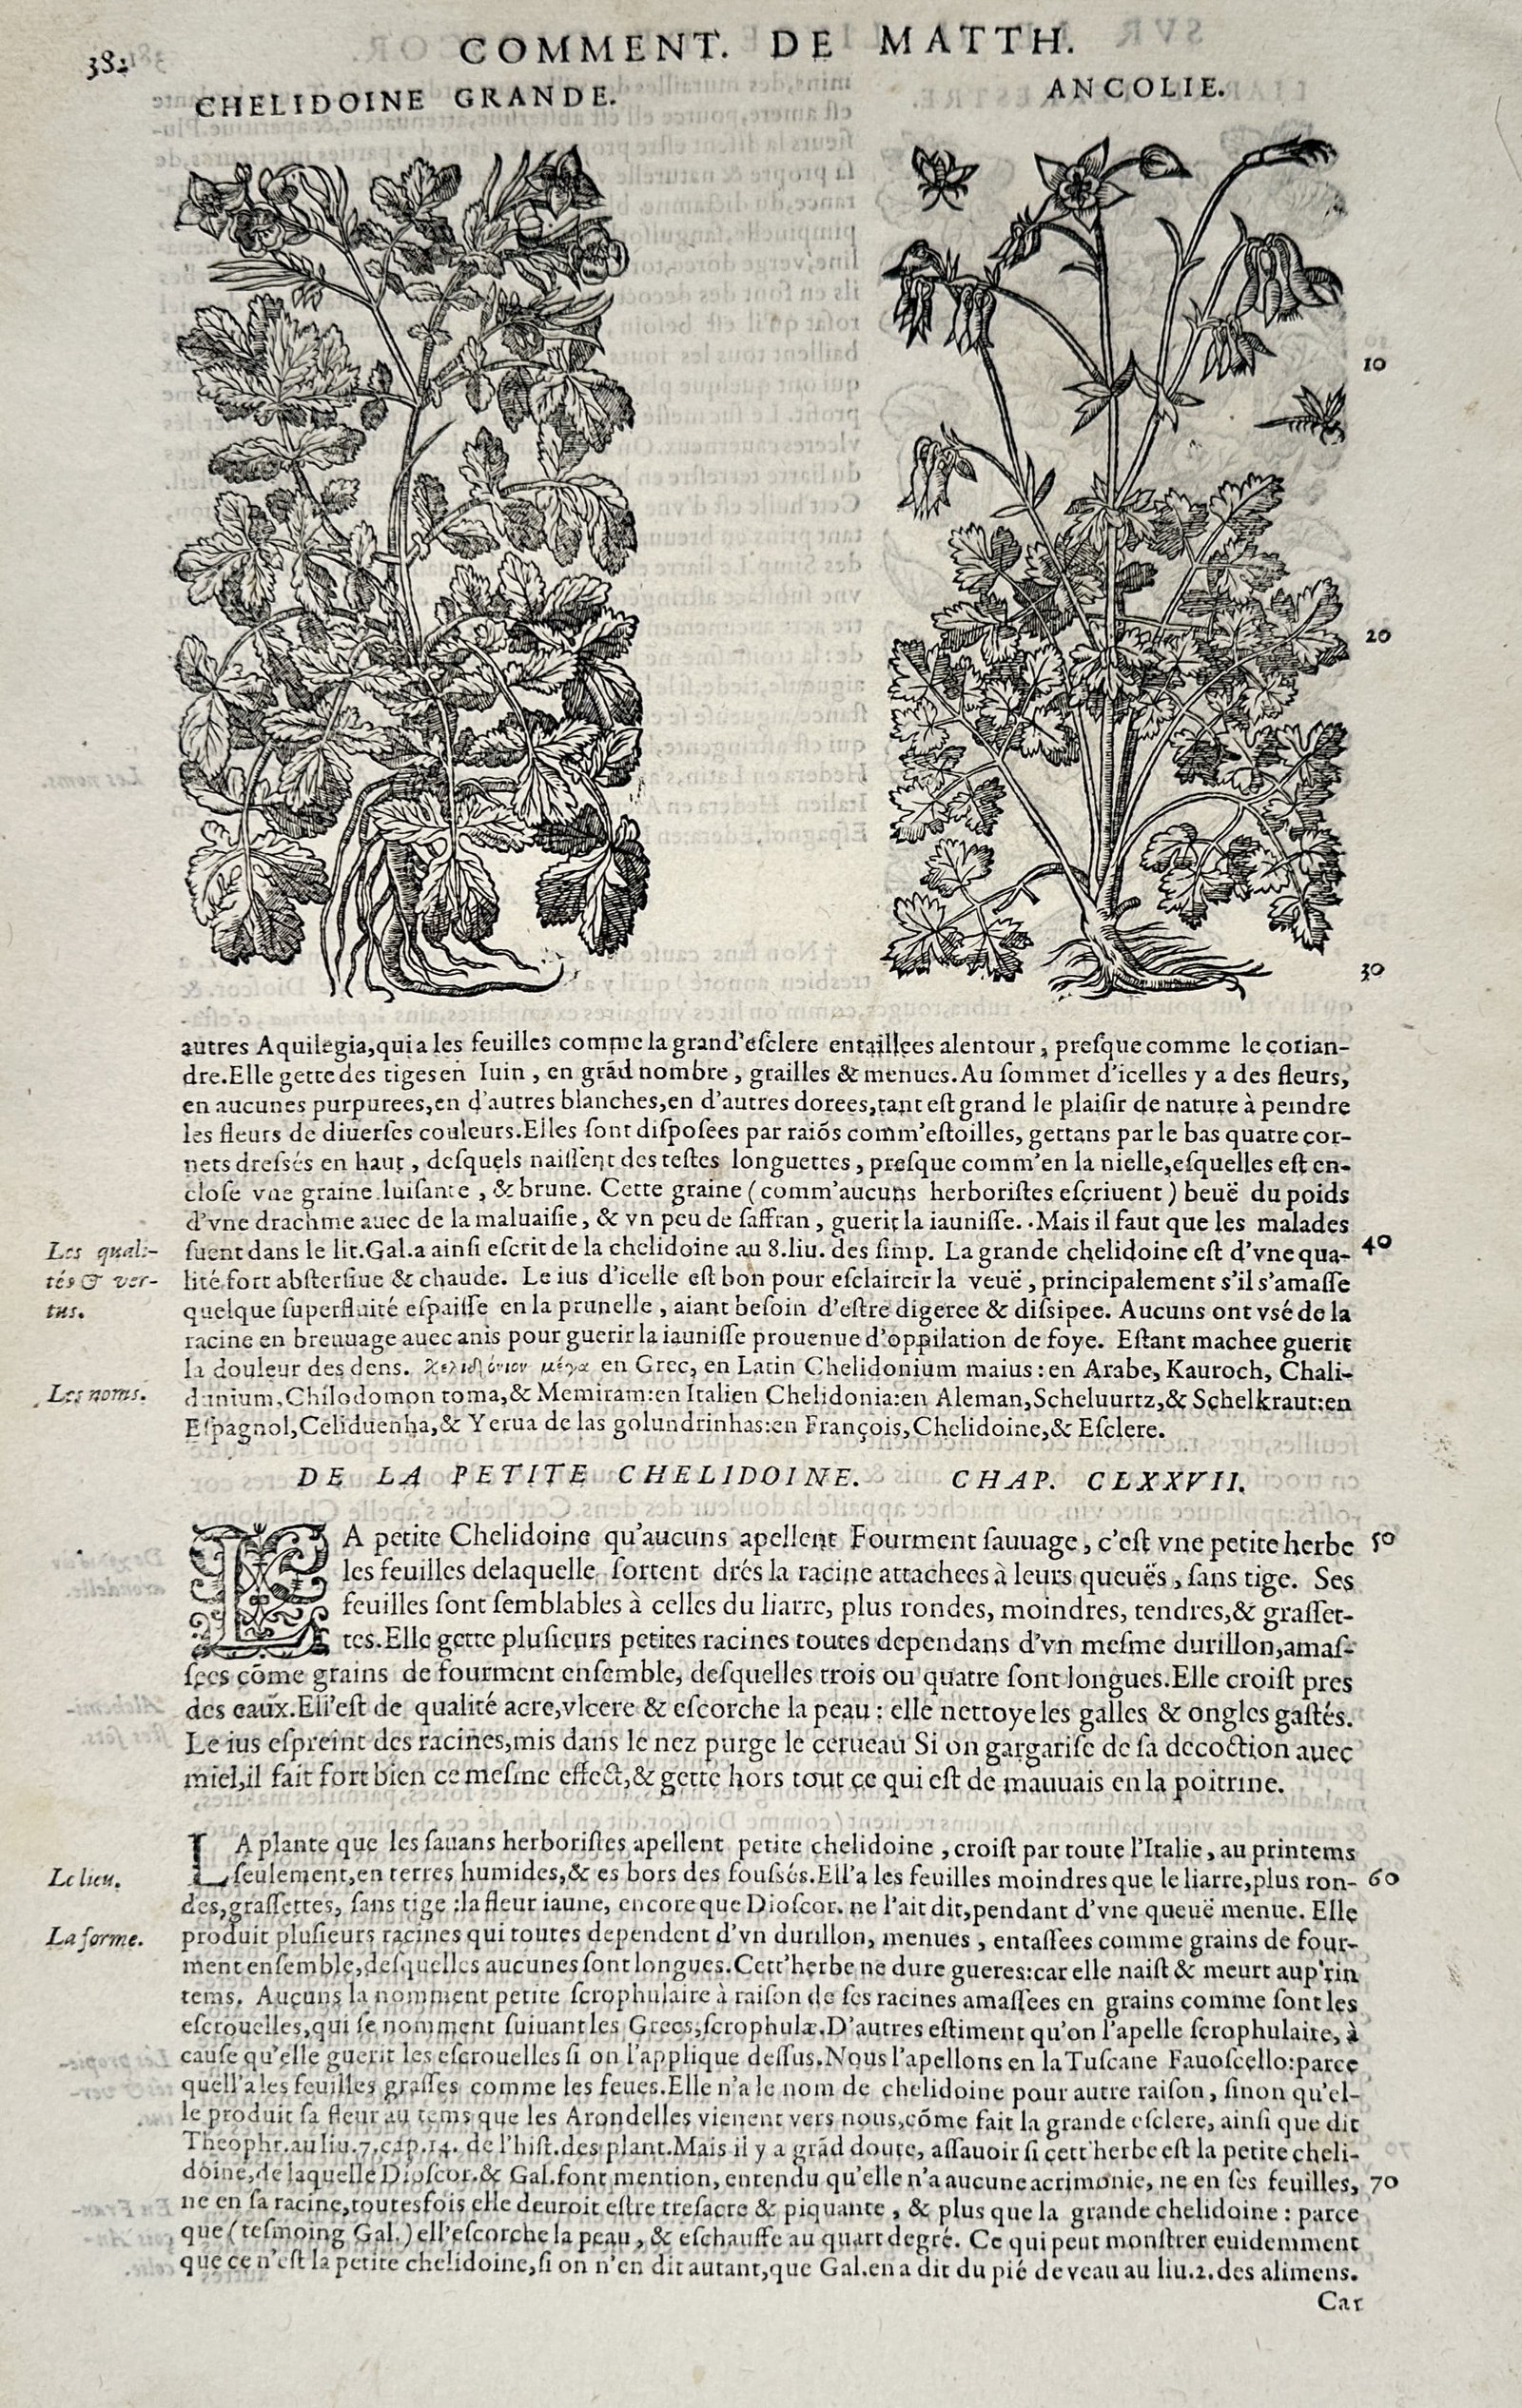 382
COMMENT. DE MATTH.
CHELIDOINE GRANDE.
ANCOLIE.
10
20
30
autres Aquilegia,qui a les feuilles comme la grand'esclere entaillees alentour, presque comme le corian-
dre.Elle gette des tiges en Iuin, en grãd nombre, grailles & menues.Au sommet d'icelles y a des fleurs,
en aucunes purpurees,en d'autres blanches,en d'autres dorees,tant est grand le plaisir de nature à peindre
les fleurs de diuerses couleurs.Elles sont disposees par raiõs comm'estoilles, gettans par le bas quatre cor-
nets dressés en haut, desquels naissent des testes longuettes, presque comm'en la nielle,esquelles est en-
close vne graine luisante, & brune. Cette graine (comm'aucuns herboristes escriuent) beuë du poids
d'vne drachme auec de la maluaisie, & vn peu de saffran, guerit la iaunisse. Mais il faut que les malades
Les quali-
tés & ver-
tus.
suent dans le lit.Gal.a ainsi escrit de la chelidoine au 8.liu. des simp. La grande chelidoine est d'vne qua-
40
lité fort abstersiue & chaude. Le ius d'icelle est bon pour esclaircir la veuë, principalement s'il s'amasse
quelque superfluité espaisse en la prunelle, aiant besoin d'estre digeree & dissipee. Aucuns ont vsé de la
racine en breuuage auec anis pour guerir la iaunisse prouenue d'oppilation de foye. Estant machee guerit
la douleur des dens. χελιδόνιον μέγα en Grec, en Latin Chelidonium maius:en Arabe, Kauroch, Chali-
Les noms.
dunium,Chilodomon toma,& Memiram:en Italien Chelidonia:en Aleman,Scheluurtz,& Schelkraut:en
Espagnol,Celiduenha,& Yerua de las golundrinhas:en François,Chelidoine,& Esclere.
DE LA PETITE CHELIDOINE. CHAP. CLXXVII.
LA petite Chelidoine qu'aucuns apellent Fourment sauuage, c'est vne petite herbe
50
les feuilles delaquelle sortent drés la racine attachees à leurs queuës, sans tige. Ses
feuilles sont semblables à celles du liarre, plus rondes, moindres, tendres,& grasset-
tes.Elle gette plusieurs petites racines toutes dependans d'vn mesme durillon,amas-
sees cõme grains de fourment ensemble, desquelles trois ou quatre sont longues.Elle croist pres
des eaux.Ell'est de qualité acre,vlcere & escorche la peau: elle nettoye les galles & ongles gastés.
Le ius espreint des racines,mis dans le nez purge le cerueau Si on gargarise de sa decoction auec
miel,il fait fort bien ce mesme effect,& gette hors tout ce qui est de mauuais en la poitrine.
LA plante que les sauans herboristes apellent petite chelidoine, croist par toute l'Italie, au printems
Le lieu.
seulement,en terres humides,& es bors des foussés.Ell'a les feuilles moindres que le liarre,plus ron-
60
des,grassettes, sans tige:la fleur iaune, encore que Dioscor. ne l'ait dit,pendant d'vne queuë menue. Elle
La forme.
produit plusieurs racines qui toutes dependent d'vn durillon, menues, entassees comme grains de four-
ment ensemble,desquelles aucunes sont longues.Cett'herbe ne dure gueres:car elle naist & meurt au prin
tems. Aucuns la nomment petite scrophulaire à raison de ses racines amassees en grains comme sont les
escrouelles,qui se nomment suiuant les Grecs,scrophulæ.D'autres estiment qu'on l'apelle scrophulaire, à
cause qu'elle guerit les escrouelles si on l'applique dessus.Nous l'apellons en la Tuscane Fauoscello:parce
quell'a les feuilles grasses comme les feues.Elle n'a le nom de chelidoine pour autre raison, sinon qu'el-
le produit sa fleur au tems que les Arondelles vienent vers nous,cõme fait la grande esclere, ainsi que dit
Theophr.au liu.7.cap.14. de l'hist.des plant.Mais il y a grãd doute, assauoir si cett'herbe est la petite cheli-
doine,de laquelle Dioscor.& Gal.font mention, entendu qu'elle n'a aucune acrimonie, ne en ses feuilles,
70
ne en sa racine,toutesfois elle deuroit estre tresacre & piquante, & plus que la grande chelidoine: parce
que (tesmoing Gal.) ell'escorche la peau, & eschauffe au quart degré. Ce qui peut monstrer euidemment
que ce n'est la petite chelidoine,si on n'en dit autant,que Gal.en a dit du pié de veau au liu.2.des alimens.
Car